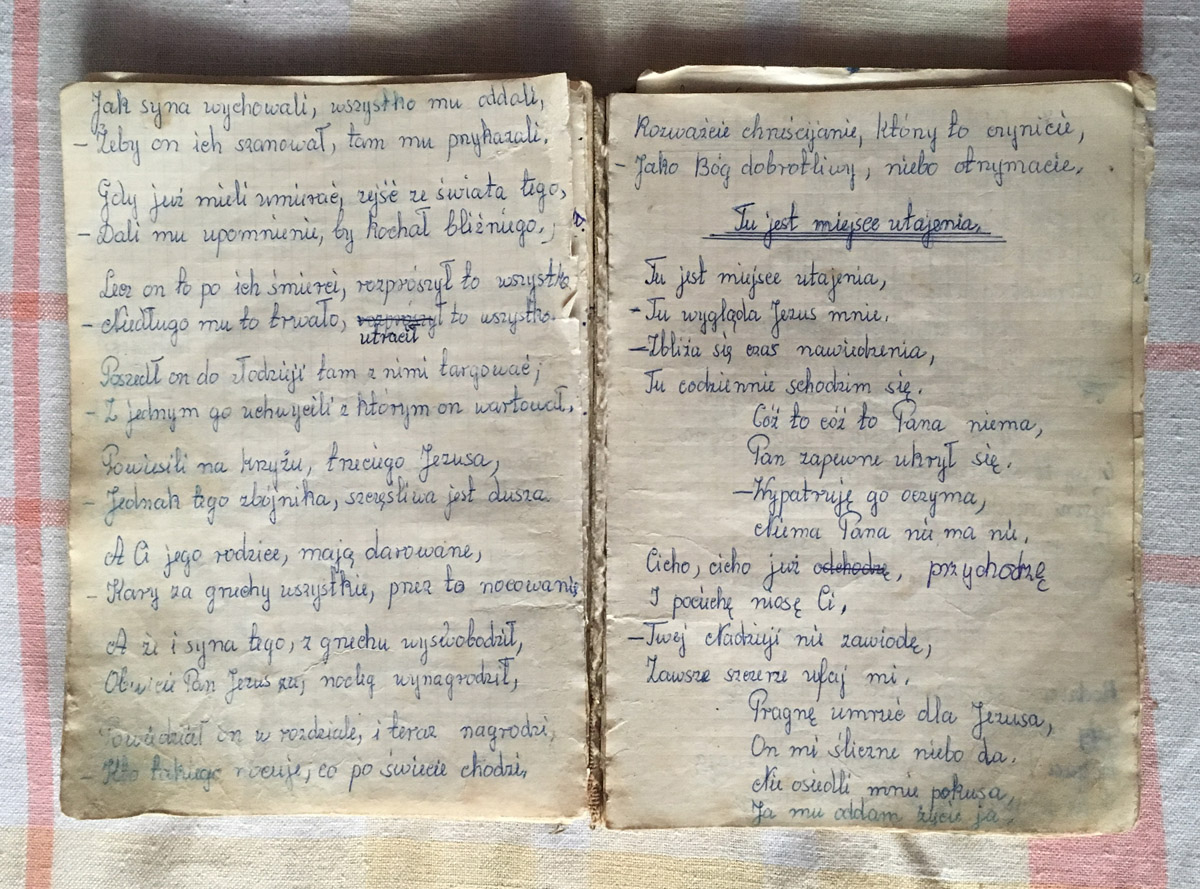 Jak syna wychowali, wszystko mu oddali,
- Żeby on ich szanował, tam mu przykazali.
Gdy już mieli umierać, zejść ze świata tego,
- Dali mu upomnienie, by kochał bliźniego.
Lecz on to po ich śmierci, rozprószył to wszystko
- Niedługo mu to trwało, rozprószył to wszystko.
utracił
Poszedł on do złodzieji tam z nimi targować;
- Z jednym go uchwycili z którym on wartował.
Powiesili na krzyżu, trzeciego Jezusa,
- Jednak tego zbójnika, szczęśliwa jest dusza.
A Ci jego rodzice, mają darowane,
- Kary za grzechy wszystkie, przez to nocowanie
A że i syna tego, z grzechu wyswobodził,
Obwicie Pan Jezus za, nocleg wynagrodził,
Powiedział on w rozdziale, i teraz nagrodzi,
- Kto takiego nocuje, co po świecie chodzi,
Rozważcie chrześcijanie, który to czynicie,
- Jako Bóg dobrotliwy, niebo otrzymacie.
Tu jest miejsce utajenia.
Tu jest miejsce utajenia,
- Tu wygląda Jezus mnie.
- Zbliża się czas nawiedzenia,
Tu codziennie schodzim się.
Cóż to cóż to Pana niema,
Pan zapewne ukrył się.
- Wypatruję go oczyma,
Niema Pana nie ma nie.
Cicho, cicho już odchodzę, przychodzę
I pociechę niosę Ci,
- Twej Nadzieji nie zawiodę,
Zawsze szczerze ufaj mi.
Pragnę umrzeć dla Jezusa,
On mi śliczne niebo da.
Nie osiedli mnie pokusa,
Ja mu oddam życie ja.